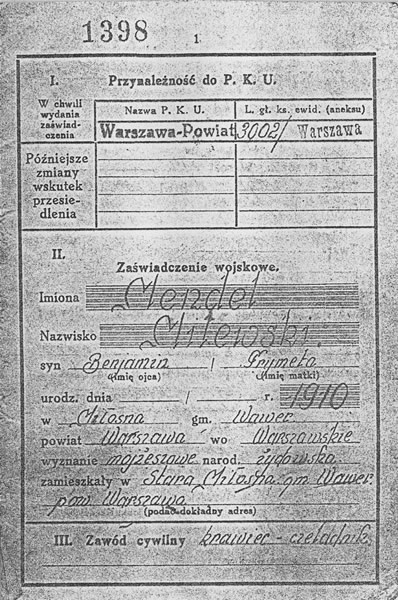 1398
1
I. Przynależność do P. K. U.
W chwili wydania zaświadczenia
Nazwa P. K. U.
L. gł. ks. ewid. (aneksu)
Warszawa-Powiat
3002/ Warszawa
Późniejsze
zmiany
wskutek
przesie-
dlenia
II.
Zaświadczenie wojskowe.
Imiona Mendel
Nazwisko Milewski.
syn Benjamin / Frymeta
(imię ojca) (imię matki)
urodz. dnia / r. 1910
w Miłosna gm. Wawer
powiat Warszawa wo Warszawskie
wyznanie mojżeszowe narod. żydowska
zamieszkały w Stara Miłosna gm. Wawer
pow. Warszawa
(podać dokładny adres)
III. Zawód cywilny krawiec - czeladnik